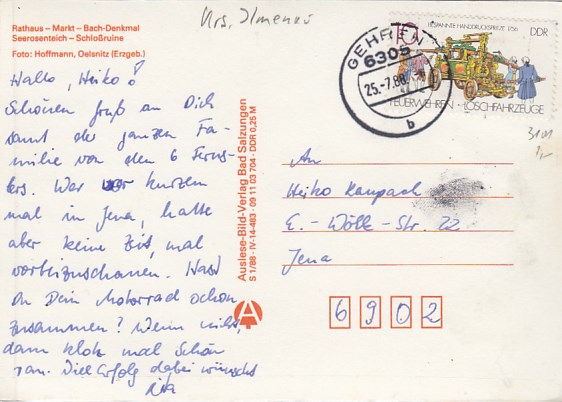 Krs. Ilmenau
Rathaus – Markt – Bach-Denkmal
Seerosenteich – Schloßruine
Foto: Hoffmann, Oelsnitz (Erzgeb.)
Hallo, Heiko!
Schönen Gruß an Dich
samt der ganzen Fa-
milie von den 6
War kurzen
mal in Jena, hatte
aber keine Zeit, mal
vorbeizuschauen. Hast
Du Dein Motorrad schon
zusammen? Wenn nicht,
dann klotz mal schön
ran. Viel Erfolg dabei wünscht
Auslese-Bild-Verlag Bad Salzungen
S 1/88 · IV-14-483 · 09 11 03 704 · DDR 0,25 M
A
GEHREN
6305
25.-7.88
b
BESPANNTE HANDDRUCKSPRITZE 1756
DDR
10
FEUERWEHREN · LÖSCHFAHRZEUGE
3101
1,-
An
Heiko Kaupach
E.-Wölk-Str. 22
Jena
6902